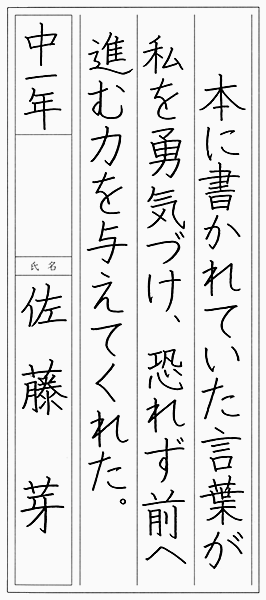 本に書かれていた言葉が
私を勇気づけ、恐れず前へ
進む力を与えてくれた。
中一年
氏名
佐藤芽